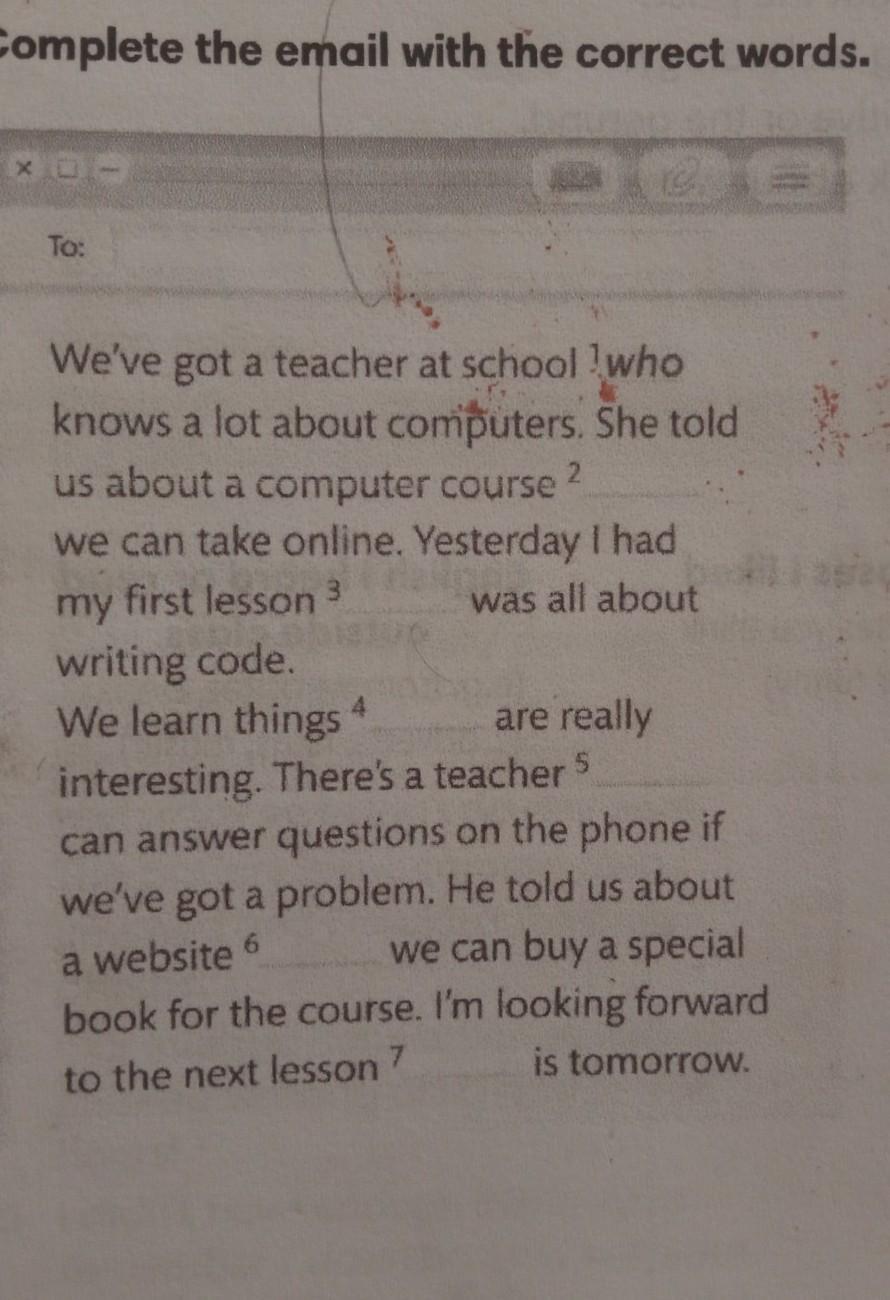 Complete the email with the correct words.
To:
We've got a teacher at school 1 who
knows a lot about computers. She told
us about a computer course 2
we can take online. Yesterday I had
my first lesson 3 was all about
writing code.
We learn things 4 are really
interesting. There's a teacher 5
can answer questions on the phone if
we've got a problem. He told us about
a website 6 we can buy a special
book for the course. I'm looking forward
to the next lesson 7 is tomorrow.